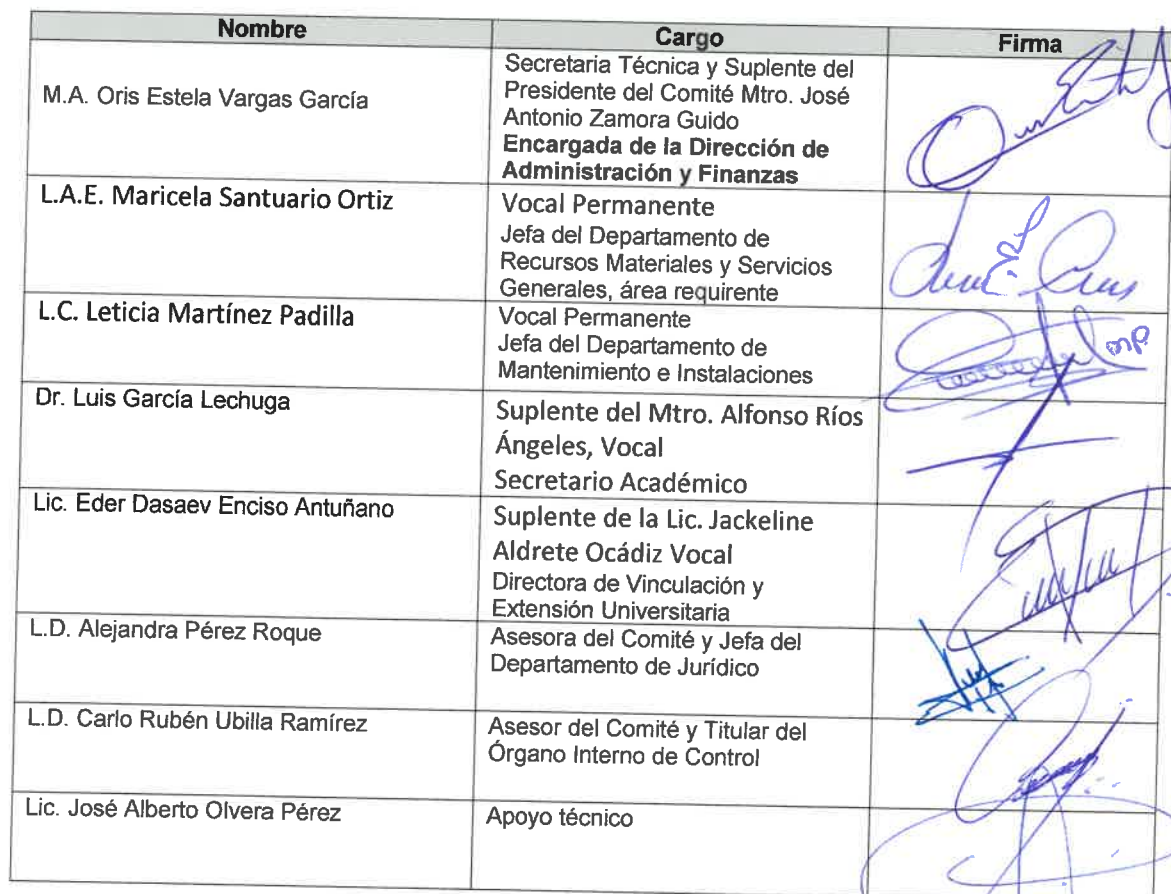 Nombre Cargo Firma
M.A. Oris Estela Vargas García
Secretaria Técnica y Suplente del
Presidente del Comité Mtro. José
Antonio Zamora Guido
Encargada de la Dirección de
Administración y Finanzas
L.A.E. Maricela Santuario Ortiz
Vocal Permanente
Jefa del Departamento de
Recursos Materiales y Servicios
Generales, área requirente
L.C. Leticia Martínez Padilla
Vocal Permanente
Jefa del Departamento de
Mantenimiento e Instalaciones
Dr. Luis García Lechuga
Suplente del Mtro. Alfonso Ríos
Ángeles, Vocal
Secretario Académico
Lic. Eder Dasaev Enciso Antuñano
Suplente de la Lic. Jackeline
Aldrete Ocádiz Vocal
Directora de Vinculación y
Extensión Universitaria
L.D. Alejandra Pérez Roque
Asesora del Comité y Jefa del
Departamento de Jurídico
L.D. Carlo Rubén Ubilla Ramírez
Asesor del Comité y Titular del
Órgano Interno de Control
Lic. José Alberto Olvera Pérez
Apoyo técnico